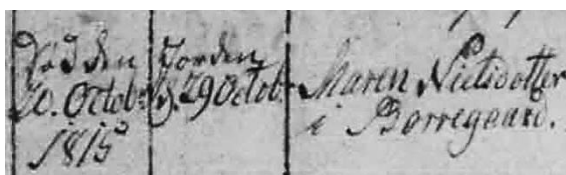 Død den
20. Octob:
1815
Jorden
d. 29 Octob:
Maren Nielsdotter
i Borregaard.